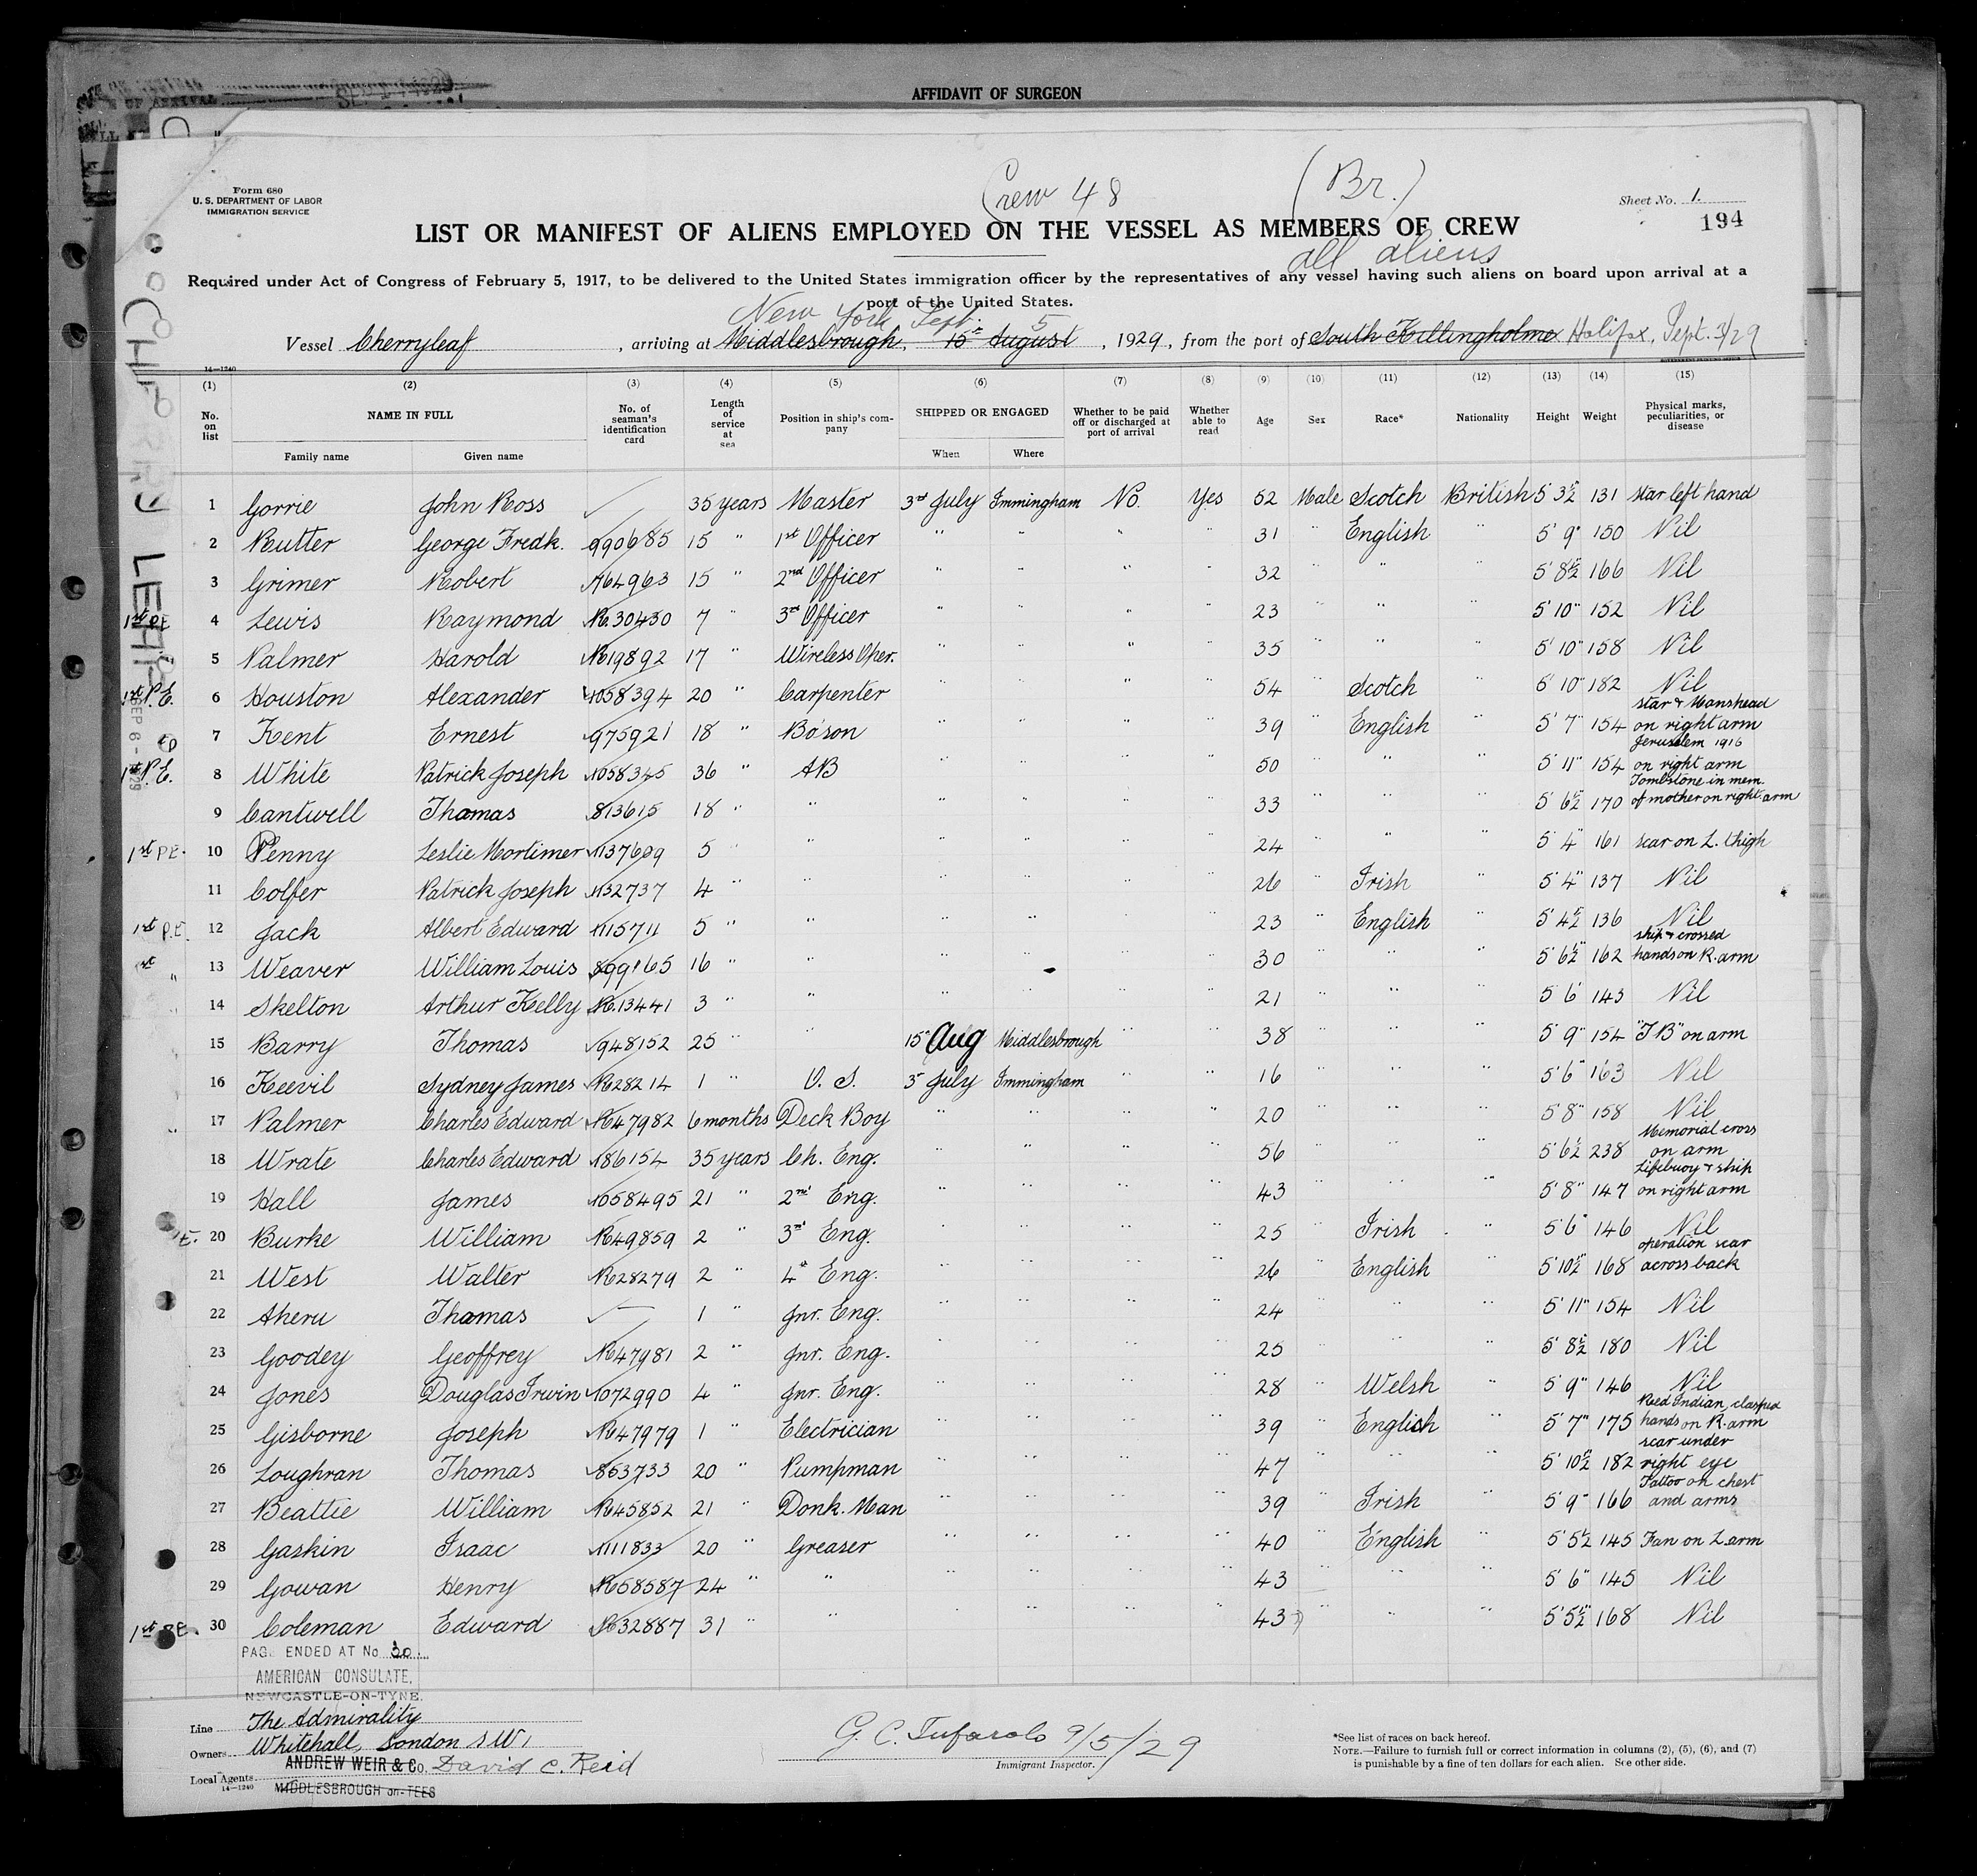 AFFIDAVIT OF SURGEON
Form 680
U. S. DEPARTMENT OF LABOR
IMMIGRATION SERVICE
Crew 48 (Br.)
Sheet No. 1.
194
LIST OR MANIFEST OF ALIENS EMPLOYED ON THE VESSEL AS MEMBERS OF CREW
all aliens
Required under Act of Congress of February 5, 1917, to be delivered to the United States immigration officer by the representatives of any vessel having such aliens on board upon arrival at a
port of the United States.
New York Sept. 5
Vessel Cherryleaf, arriving at Middlesbrough, 15th August, 1929, from the port of South Killingholme Halifax, Sept. 3/29
14—1240
(1) (2) (3) (4) (5) (6) (7) (8) (9) (10) (11) (12) (13) (14) (15)
No. on list NAME IN FULL Family name Given name No. of seaman's identification card Length of service at sea Position in ship's company SHIPPED OR ENGAGED When Where Whether to be paid off or discharged at port of arrival Whether able to read Age Sex Race* Nationality Height Weight Physical marks, peculiarities, or disease
1 Gorrie John Ross 35 years Master 3rd July Immingham No. Yes 52 Male Scotch British 5 3½ 131 star left hand
2 Rutter George Fredk. 990685 15 " 1st Officer " " " " 31 " English " 5' 9" 150 Nil
3 Grimer Robert 764963 15 " 2nd Officer " " " " 32 " " " 5' 8½ 166 Nil
1st PE 4 Lewis Raymond R.30430 7 " 3rd Officer " " " " 23 " " " 5' 10" 152 Nil
5 Palmer Harold R619892 17 " Wireless Oper. " " " " 35 " " " 5' 10" 158 Nil
1st P.E. 6 Houston Alexander 1058394 20 " Carpenter " " " " 54 " Scotch " 5' 10" 182 Nil
7 Kent Ernest 975921 18 " Bo'son " " " " 39 " English " 5' 7" 154 star & Manshead on right arm
1st P.E. 8 White Patrick Joseph 1058345 36 " AB " " " " 50 " " " 5' 11" 154 Jerusalem 1916 on right arm
9 Cantwell Thomas 813615 18 " " " " " " 33 " " " 5' 6½ 170 Tombstone in mem. of mother on right arm
1st PE. 10 Penny Leslie Mortimer 1137609 5 " " " " " " 24 " " 5 4" 161 scar on L. thigh
11 Colfer Patrick Joseph 1132737 4 " " " " " " 26 " Irish " 5' 4" 137 Nil
1st P.E. 12 Jack Albert Edward 1115711 5 " " " " " " 23 " English " 5' 4½ 136 Nil
1st " 13 Weaver William Louis 899165 16 " " " " " " 30 " " " 5' 6½ 162 ship & crossed hands on R. arm
14 Skelton Arthur Kelly R.13441 3 " " " " " " 21 " " " 5 6' 143 Nil
15 Barry Thomas 948152 25 " " 15th Aug Middlesbrough " " 38 " " " 5' 9" 154 "TB" on arm
16 Keevil Sydney James R628214 1 " O. S. 3rd July Immingham " " 16 " " " 5' 6" 163 Nil
17 Palmer Charles Edward R647982 6 months Deck Boy " " " " 20 " " " 5' 8" 158 Nil
18 Wrate Charles Edward 186154 35 years Ch. Eng. " " " " 56 " " " 5' 6½ 238 Memorial cross on arm
19 Hall James 1058495 21 " 2nd Eng. " " " " 43 " " " 5' 8" 147 Lifebuoy & ship on right arm
E. 20 Burke William R649859 2 " 3rd Eng. " " " " 25 " Irish " 5 6" 146 Nil
21 West Walter R628279 2 " 4th Eng. " " " " 26 " English " 5' 10½ 168 operation scar across back
22 Ahern Thomas 1 " Jnr. Eng. " " " " 24 " " " 5' 11" 154 Nil
23 Goodey Geoffrey R647981 2 " Jnr. Eng. " " " " 25 " " " 5' 8½ 180 Nil
24 Jones Douglas Irwin 1072990 4 " Jnr. Eng. " " " " 28 " Welsh " 5 9" 146 Nil
25 Gisborne Joseph R647979 1 " Electrician " " " " 39 " English " 5' 7" 175 Red Indian, clasped hands on R. arm
26 Loughran Thomas 863733 20 " Pumpman " " " " 47 " " " 5' 10½ 182 scar under right eye
27 Beattie William R645852 21 " Donk. Man " " " " 39 " Irish " 5' 9" 166 Tattoo on chest and arms
28 Gaskin Isaac 1111833 20 " Greaser " " " " 40 " English " 5' 5½ 145 Fan on L. arm
29 Gowan Henry R658587 24 " " " " " " 43 " " " 5' 6" 145 Nil
1st P.E. 30 Coleman Edward R632887 31 " " " " " " 43 " " " 5' 5½ 168 Nil
PAGE ENDED AT No 30.
AMERICAN CONSULATE,
NEWCASTLE-ON-TYNE.
Line The Admirality
Owners Whitehall, London S W1
Local Agents ANDREW WEIR & Co. David C. Reid
14—1240 MIDDLESBROUGH on-TEES
G. C. Tufarolo 9/5/29
Immigrant Inspector.
*See list of races on back hereof.
NOTE.—Failure to furnish full or correct information in columns (2), (5), (6), and (7)
is punishable by a fine of ten dollars for each alien. See other side.